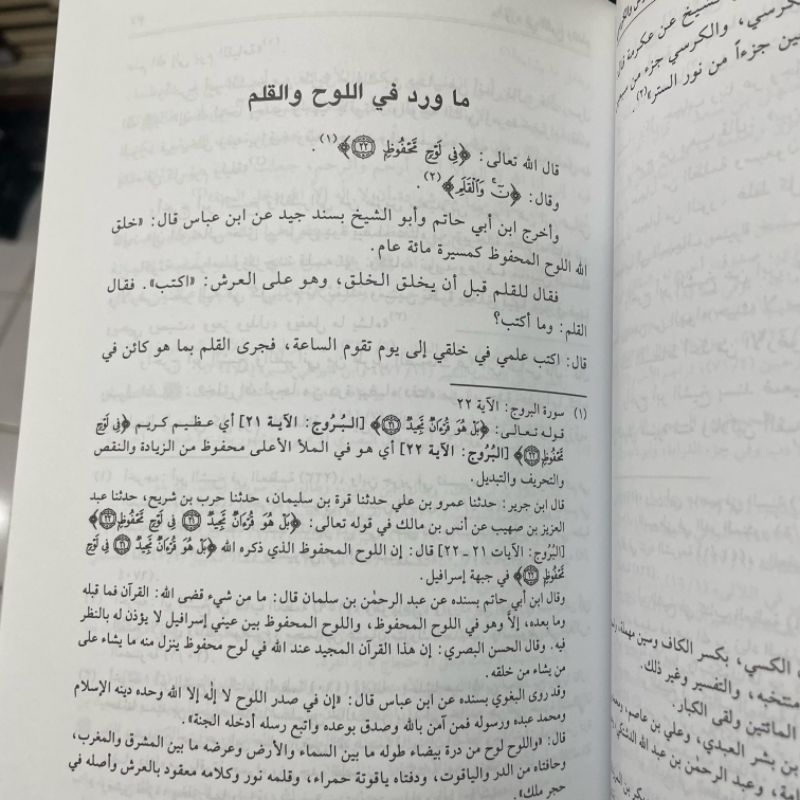 ما ورد في اللوح والقلم
قال الله تعالى: ﴿فِي لَوْحٍ مَّحْفُوظٍ ۝٢٢﴾(١).
وقال: ﴿نٓ ۚ وَالْقَلَمِ﴾(٢).
وأخرج ابن أبي حاتم وأبو الشيخ بسند جيد عن ابن عباس قال: «خلق
الله اللوح المحفوظ كمسيرة مائة عام.
فقال للقلم قبل أن يخلق الخلق، وهو على العرش: «اكتب». فقال
القلم: وما أكتب؟
قال: اكتب علمي في خلقي إلى يوم تقوم الساعة، فجرى القلم بما هو كائن في
(١) سورة البروج: الآية ٢٢
قوله تعالى: ﴿بَلْ هُوَ قُرْءَانٌ مَّجِيدٌ ۝٢١﴾ [البُرُوج: الآية ٢١] أي عظيم كريم ﴿فِي لَوْحٍ
مَّحْفُوظٍ ۝٢٢﴾ [البُرُوج: الآية ٢٢] أي هو في الملأ الأعلى محفوظ من الزيادة والنقص
والتحريف والتبديل.
قال ابن جرير: حدثنا عمرو بن علي حدثنا قرة بن سليمان، حدثنا حرب بن شريح، حدثنا عبد
العزيز بن صهيب عن أنس بن مالك في قوله تعالى: ﴿بَلْ هُوَ قُرْءَانٌ مَّجِيدٌ ۝٢١ فِي لَوْحٍ مَّحْفُوظٍ ۝٢٢﴾
[البُرُوج: الآيات ٢١ ـ ٢٢] قال: إن اللوح المحفوظ الذي ذكره الله ﴿بَلْ هُوَ قُرْءَانٌ مَّجِيدٌ ۝٢١ فِي لَوْحٍ
مَّحْفُوظٍ ۝٢٢﴾ في جبهة إسرافيل.
وقال ابن أبي حاتم بسنده عن عبد الرحمٰن بن سلمان قال: ما من شيء قضى الله: القرآن فما قبله
وما بعده، إلا وهو في اللوح المحفوظ، واللوح المحفوظ بين عيني إسرافيل لا يؤذن له بالنظر
فيه. وقال الحسن البصري: إن هذا القرآن المجيد عند الله في لوح محفوظ ينزل منه ما يشاء على
من يشاء من خلقه.
وقد روى البغوي بسنده عن ابن عباس قال: «إن في صدر اللوح لا إلٰه إلا الله وحده دينه الإسلام
ومحمد عبده ورسوله فمن آمن بالله وصدق بوعده واتبع رسله أدخله الجنة».
قال: «واللوح لوح من درة بيضاء طوله ما بين السماء والأرض وعرضه ما بين المشرق والمغرب،
وحافتاه من الدر والياقوت، ودفتاه ياقوتة حمراء، وقلمه نور وكلامه معقود بالعرش وأصله في
حجر ملك».
الشيخ عن عكرمة قال
كرسي، والكرسي جزء من
ين جزءاً من نور الستر»(٢).
الكسي، بكسر الكاف وسين مهملة،
منتخبه، والتفسير وغير ذلك.
المائتين ولقى الكبار.
بن بشر العبدي، وعلي بن عاصم،
وعبد الرحمٰن بن عبد الله